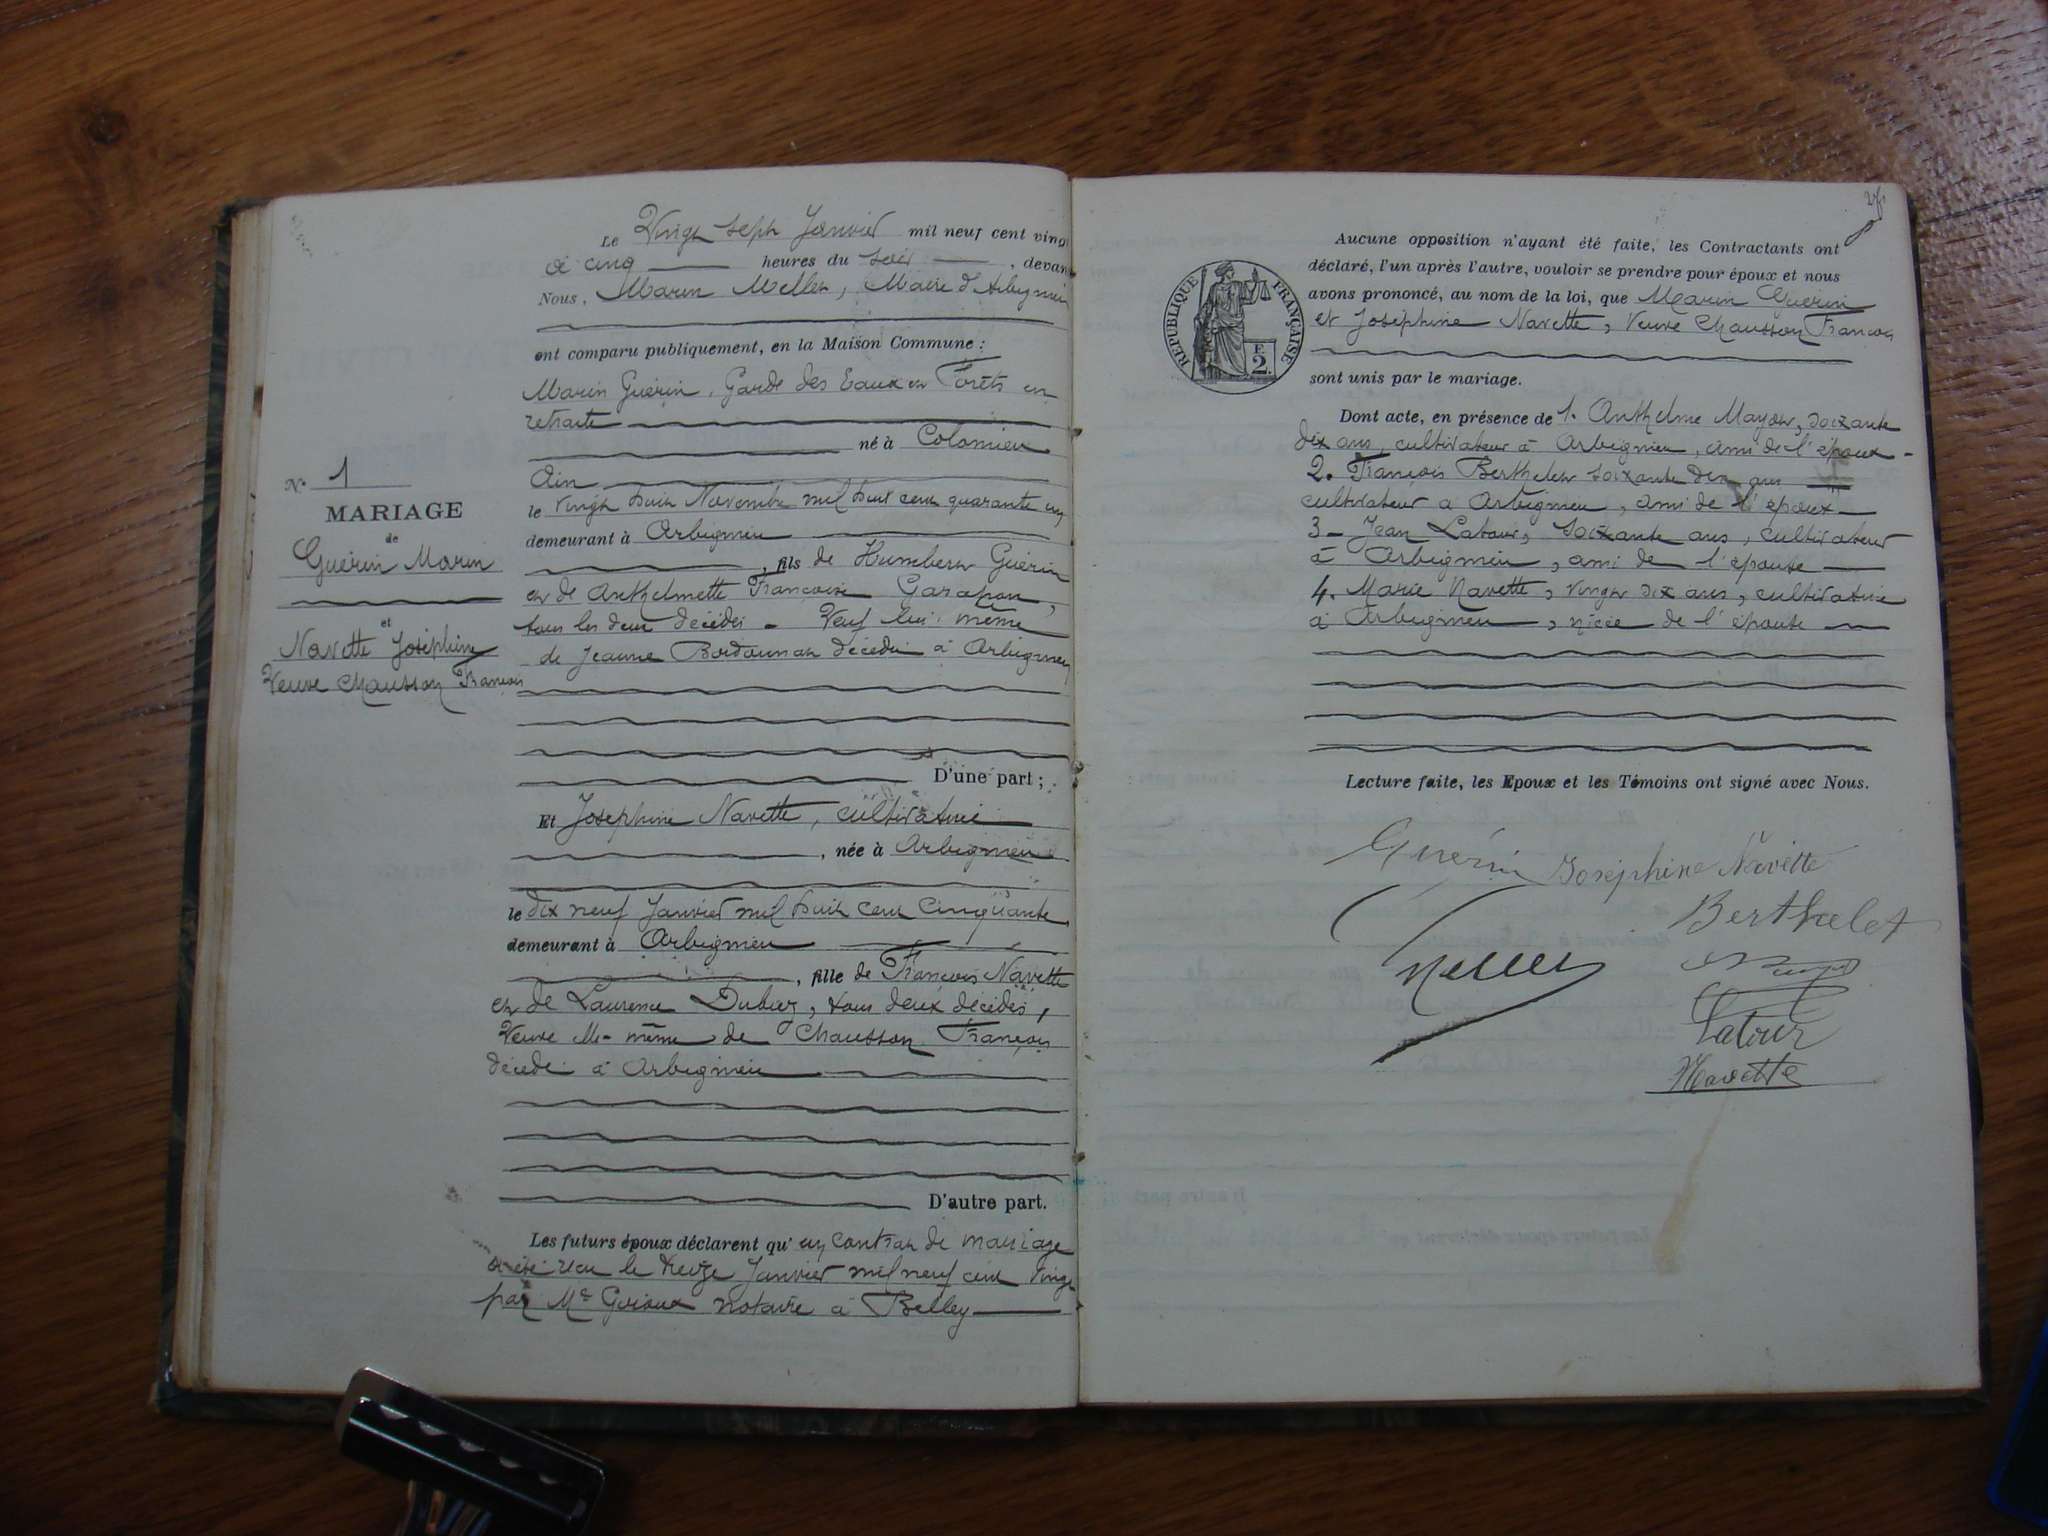 N° 1
MARIAGE
de
Guérin Marin
et
Navette Joséphine
Veuve Chausson François
Le Vingt sept Janvier mil neuf cent vingt
à cinq heures du soir, devant
Nous, Marin Mellet, Maire d'Arbignieu
ont comparu publiquement, en la Maison Commune :
Marin Guérin, Garde des Eaux et Forêts en
retraite
né à Colomieu
Ain
le vingt huit Novembre mil huit cent quarante un
demeurant à Arbignieu
, fils de Humbert Guérin
et de Anthelmette Françoise Garapon,
tous les deux décédés - Veuf lui-même
de Jeanne décédée à Arbignieu
D'une part ;
Et Josephine Navette, cultivatrice
, née à Arbignieu
le dix neuf Janvier mil huit cent cinquante
demeurant à Arbignieu
, fille de François Navette
et de Laurence Dubiez, tous deux décédés,
Veuve elle-même de Chausson François
décédé à Arbignieu
D'autre part.
Les futurs époux déclarent qu'un contrat de mariage
a été reçu le treize Janvier mil neuf cent vingt
par Me notaire à Belley
REPUBLIQUE FRANÇAISE
F
2
Aucune opposition n'ayant été faite, les Contractants ont
déclaré, l'un après l'autre, vouloir se prendre pour époux et nous
avons prononcé, au nom de la loi, que Marin Guérin
et Joséphine Navette, Veuve Chausson François
sont unis par le mariage.
Dont acte, en présence de 1. Anthelme, soixante
dix ans, cultivateur à Arbignieu, ami de l'époux -
2. François Berthelet soixante dix ans
cultivateur à Arbignieu, ami de l'époux
3 - Jean Latour, soixante ans, cultivateur
à Arbignieu, ami de l'épouse
4. Marie Navette, vingt dix ans, cultivatrice
à Arbignieu, nièce de l'épouse
Lecture faite, les Epoux et les Témoins ont signé avec Nous.
Guérin Joséphine Navette
Berthelet
Mellet
Latour
Navette